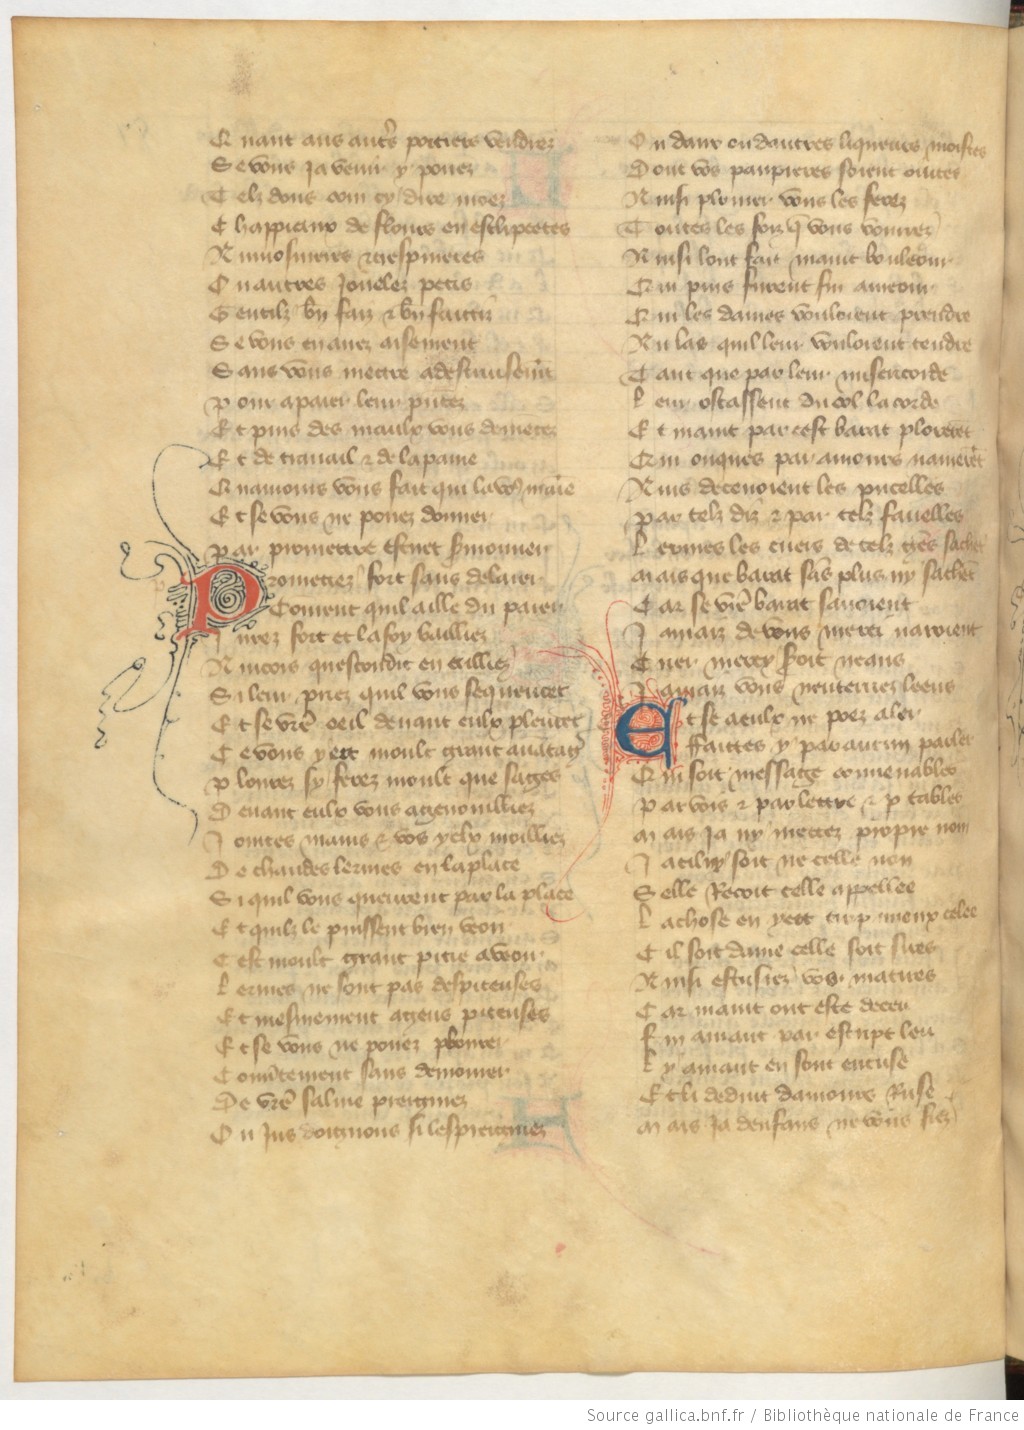 Quant aus autrs portiers vendrez
Se vous ja venir y pouez
Telz dons com cy dire moez
Chappiaux de flours en esclipcetes
Aumosnieres crespinetes
Ou autres Jouelez petis
Gentilz bn faiz & bn faittiz
Se vous en auez aisement
Sans vous mectre a
pour apaier leur putez
Et puis des maulx vous demetez
Et de trauail & de la paine
Quamours vous fait qui la vos maie
Et se vous ne pouez donner
par promettre estuet sermonner
Prometiez fort sans delaier
Coment quil aille du paier
Jurez fort et la foy bailliez
Aincois quescondit en ailliez
Si leur priez quil vous sequeurent
Et se vre oeil deuant eulx pleurent
Ce vous y ert moult grant auatag
plourez sy ferez moult que sages
Deuant eulx vous agenoulliez
Jointes mains & vos yelx moilliez
De chaudes lermes en la place
Si quil vous queurent par la place
Et quilz le puissent bien veoir
Cest moult grant pitie a veoir
Lermes ne sont pas despiteuses
Et mesmement a gens piteuses
Et se vous ne pouez plourer
Couutement sans demourer
De vre saliue preigniez
Ou Jus doignons si lespreigniez
Ou daux ou dautres liqueurs moistes
Dont vos paupieres soient ointes
Ainsi plourer vous les ferez
Toutes les foiz q vous vourrez
Ainsi lont fait maint bouleour
Qui puis furent fin ameour
Qui les dames vouloient prendre
Au las quil leur vouloient tendre
Tant que par leur misericorde
Leur ostassent du col la corde
Et maint par cest barat plorerent
Qui onques par amours namerent
Ains deceuoient les pucelles
par telz diz & par telz fauelles
Lermes les cuers de telz gens sachet
Mais que barat sas plus ny sachet
Car se vre barat sauoient
Jamaiz de vous merci nauroient
Crier mercy seroit neans
Jamaiz vous nenterriez leens
Et se a eulx ne poez aler
Faittes y par aucun parler
Qui soit message conuenables
par vois & par lettre & p tables
Mais Ja ny mettez propre nom
Ja cil ny soit ne celle non
Selle Recoit celle appellee
La chose en yert trop mieux celee
Cil soit dame celle soit sires
Ainsi escrisiez vos matires
Car maint ont este deceu
Fin amant par escript leu
Ly amant en sont encuse
Et li deduit damours Ruse
Mais Ja denfans ne vous fiez